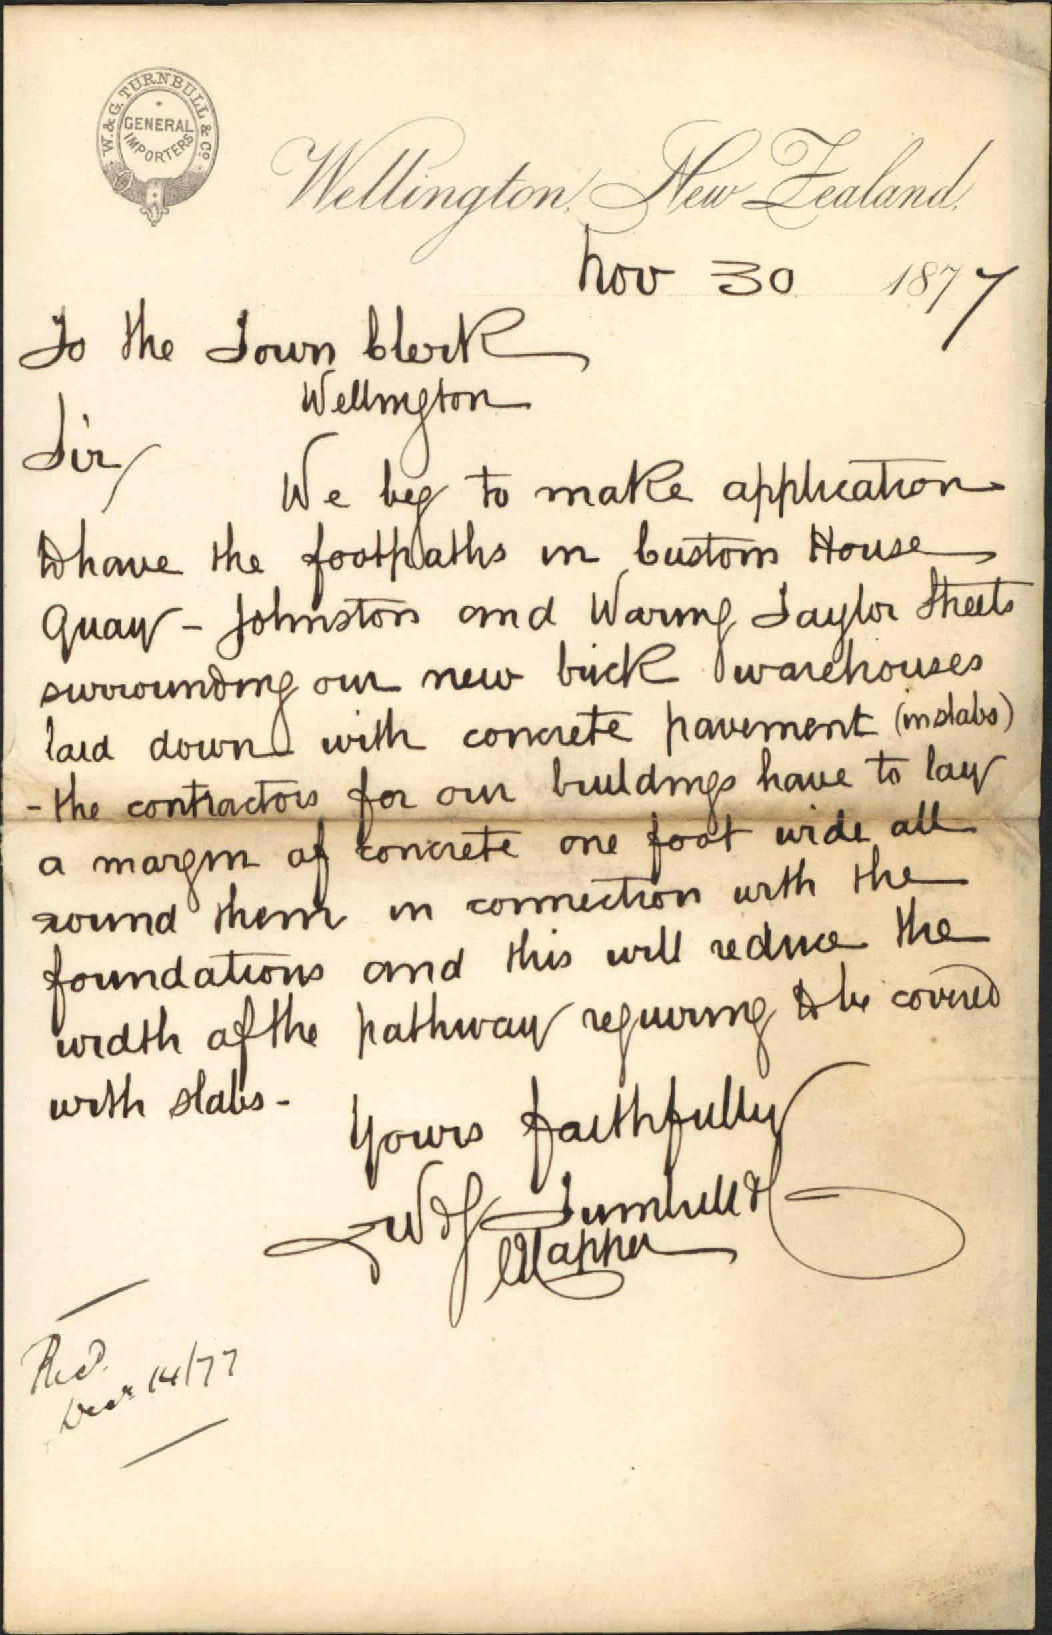 W. & G. TURNBULL & Co.
GENERAL
IMPORTERS
Wellington, New Zealand,
Nov 30 1877
To the Town Clerk
Wellington
Sir/
We beg to make application
to have the footpaths in Custom House
Quay - Johnston and Waring Taylor Streets
surrounding our new brick warehouses
laid down with concrete pavement (in slabs)
- the contractors for our buildings have to lay
a margin of concrete one foot wide all
round them in connection with the
foundations and this will reduce the
width of the pathway requiring to be covered
with slabs -
Yours faithfully
W & G Turnbull &
Recd.
Decr 14/77